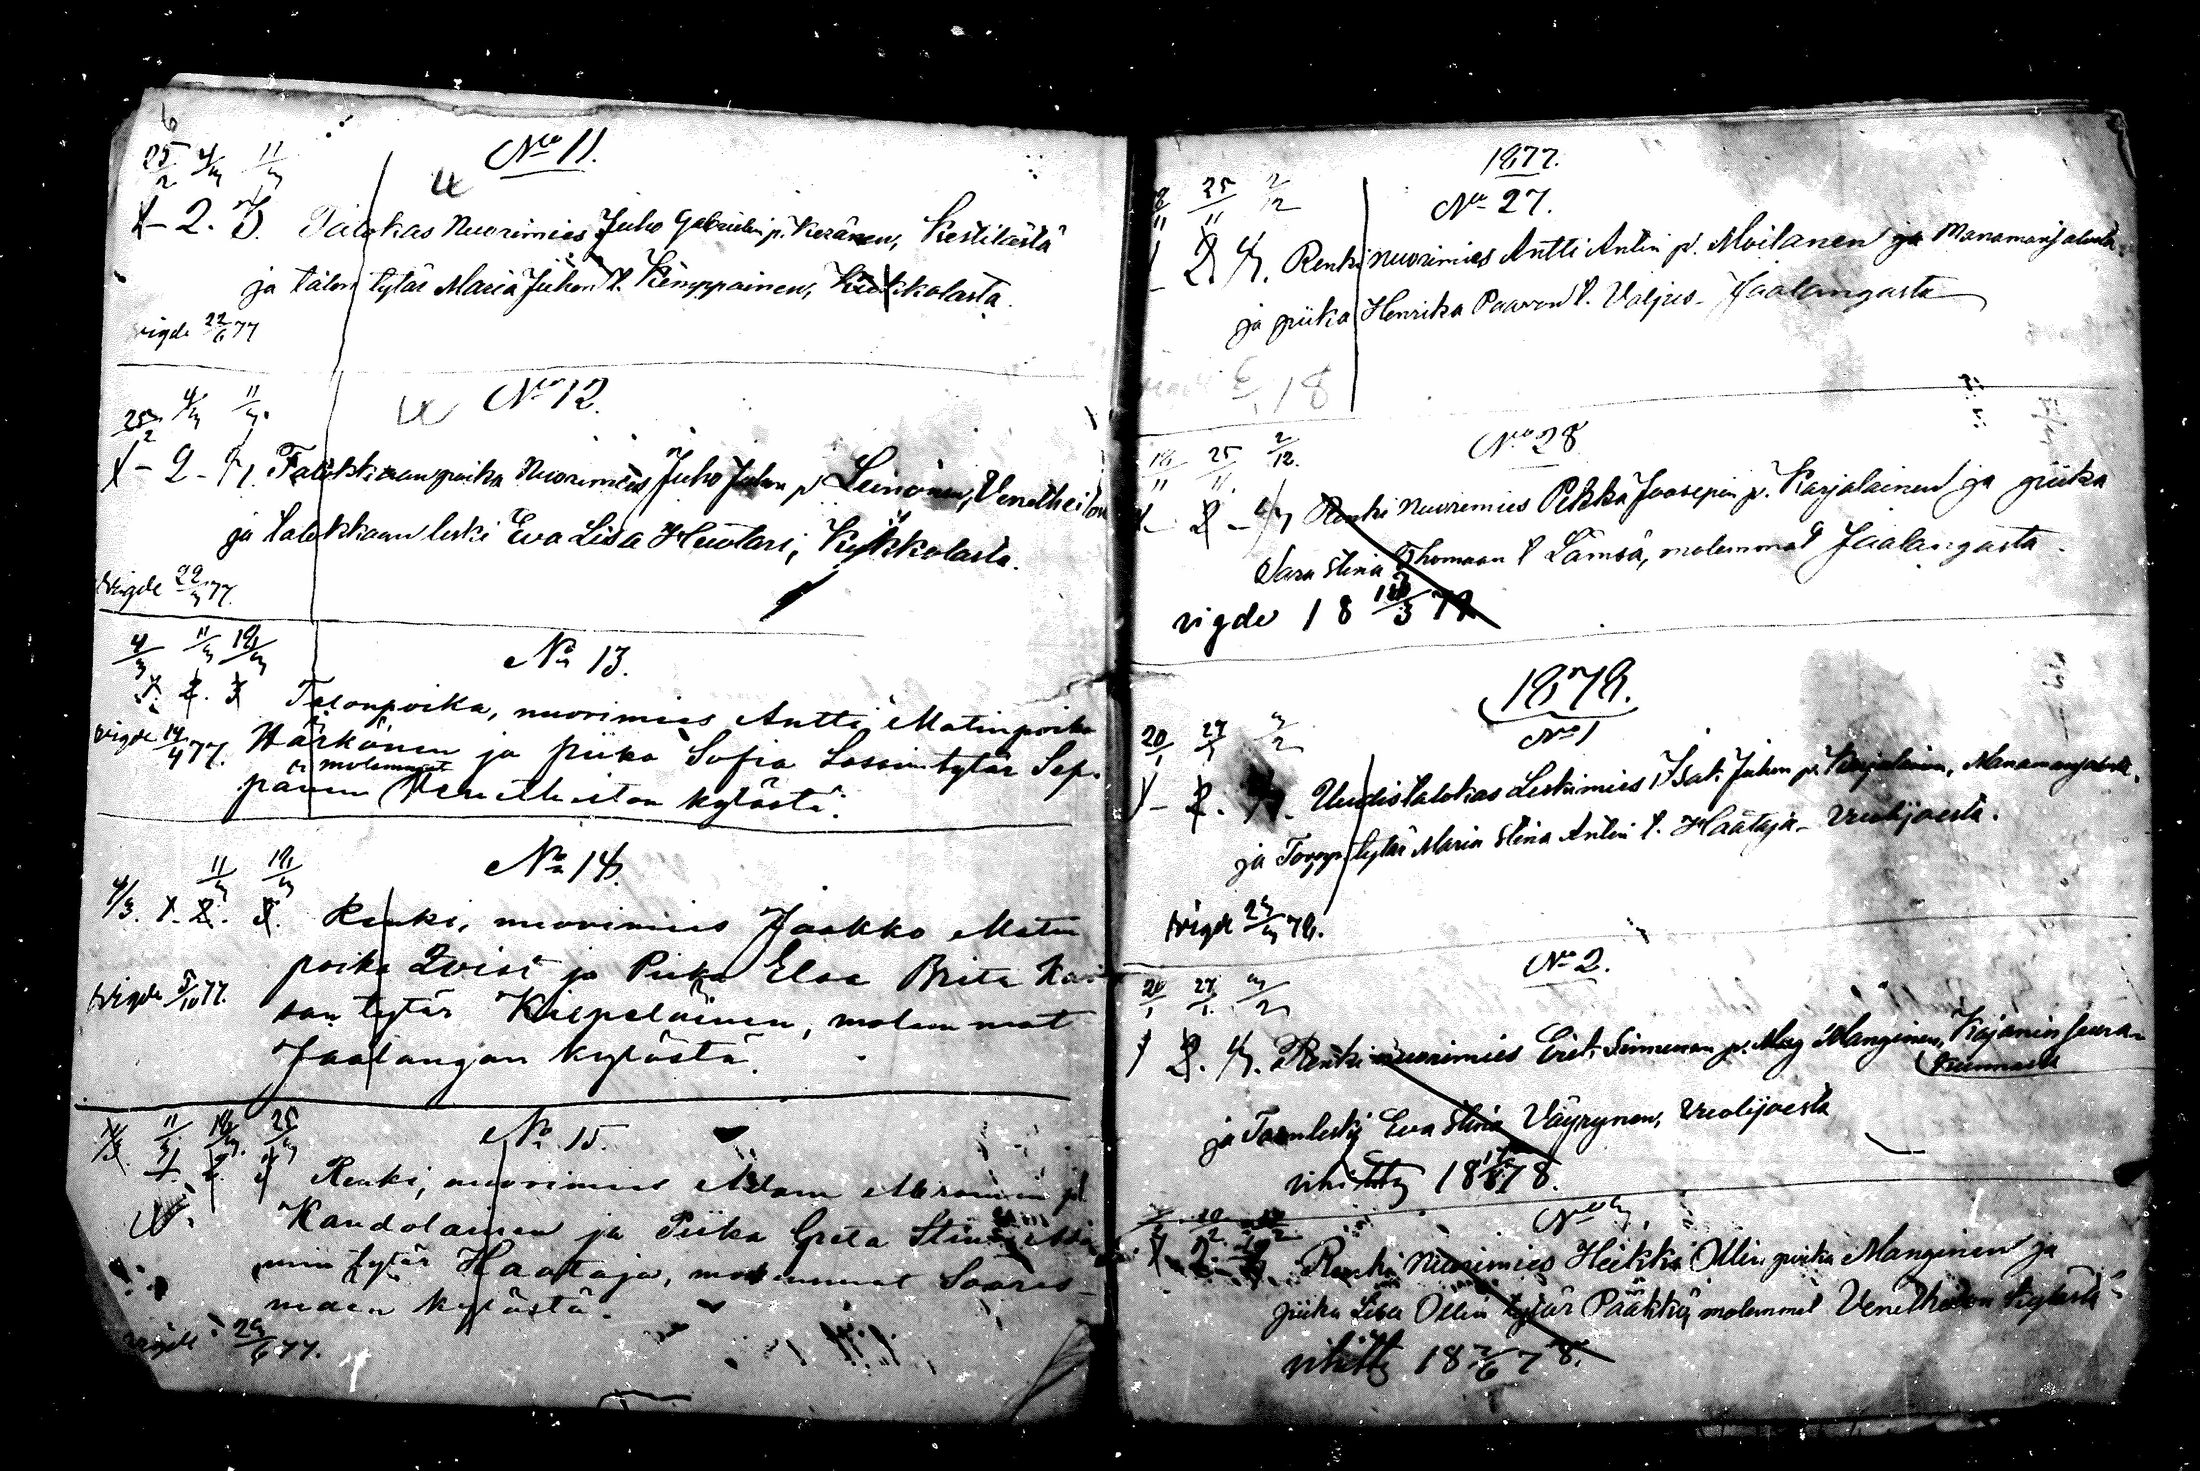 6
25/2 4/3 11/3
No 11.
1 - 2. 3. Talokas Nuorimies Juho Gabrielin p. Keränen, Kestilästä
ja talon tytär Maria Juhon t. Kemppainen, Kukkolasta.
vigde 22/6 77
25/2 4/3 11/3.
No 12.
1 - 2 - 3. Talokkaan poika Nuorimies Juho Juhon p Leinonen, Venetheiton
ja talokkaan leski Eva Lisa Huotari, Kykkolasta.
vigde 22/3 77.
4/3 11/3 18/3
No 13.
1. 2. 3 Talonpoika, nuorimies Antti Matinpoika
vigde 19/4 77. Härkönen ja piika Sofia Lassintytär Sep-
pänen molemmat Venetheiton kylästä.
No 14.
4/3. 11/3 18/3
1. 2. 3. Renki, nuorimies Jaakko Matin
poika Qvist ja Piika Elsa Brita
vigde 5/10 77. tytär Kiepeläinen, molemmat
Jaalangan kylästä.
11/3 18/3 25/3
No 15.
1 2 3 Renki, nuorimies Adam
Kandolainen ja Piika Greta Stina
tytär Haataja, molemmat Saares-
mäen kylästä.
vigde 29/6 77.
1877.
18/11 25/11 2/12
No 27.
1 2 3. Renki nuorimies Antti Antin p. Moilanen ja Manamansalosta
ja piika Henrika Paavon t. Valjus - Jaalangasta
18
18/11 25/11 2/12.
No 28
1 - 2 - 3 Renki nuorimies Pekka Joosepin p. Karjalainen ja piika
Sara Stina Thomaan t Lämsä, molemmat Jaalangasta.
vigde 18
1878.
20/1 27/1 3/2
No 1
1 - 2. 3. Uudistalokas Leskimies Isak Juhon p. Karjalainen, Manamansalosta.
ja Torpp. tytär Maria Stina Antin t. Haataja - Vuolijoesta.
vigde 24/3 78.
No 2.
20/1 27/1 3/2
1 2. 3. Renki nuorimies Erik Mag Manginen, Kajanin seura-
kunnasta
ja leski Eva Stina Väyrynen, Vuolijoesta
vihitty 18 78.
No 3
1 - 2 - 3 Renki Nuorimies Heikki Ollin poika Manginen ja
piika Lisa Ollin tytär Pääkkö molemmat Venetheiton kylästä
vihitty 18 2/6 78.